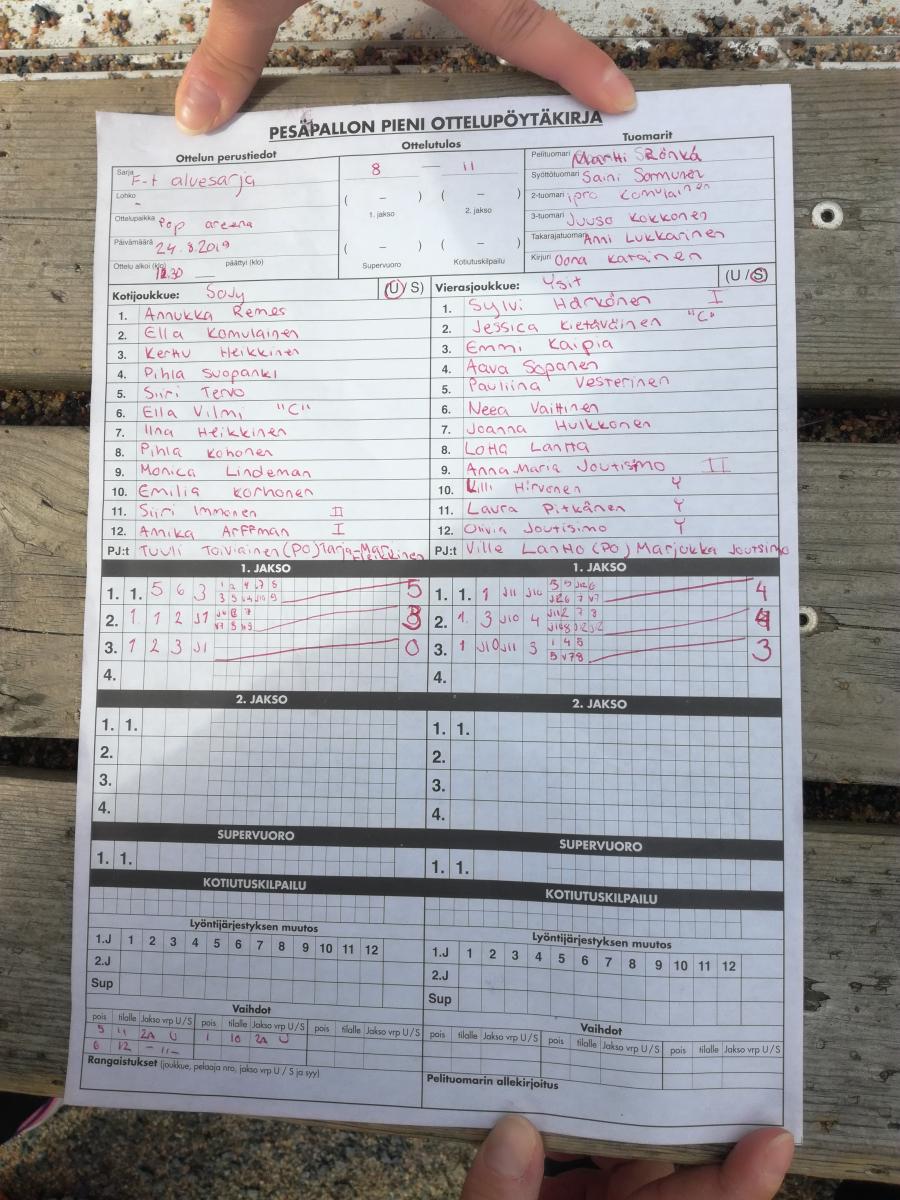 PESÄPALLON PIENI OTTELUPÖYTÄKIRJA
Ottelun perustiedot
Sarja F-t aluesarja
Lohko -
Ottelupaikka Pop areena
Päivämäärä 24.8.2019
Ottelu alkoi (klo) 12.30 päättyi (klo)
Ottelutulos
8 — 11
( – ) ( – )
1. jakso 2. jakso
( – ) ( – )
Supervuoro Kotiutuskilpailu
Tuomarit
Pelituomari Martti
Syöttötuomari Saini Sormunen
2-tuomari Komulainen
3-tuomari Juuso Kokkonen
Takarajatuomari Anni Lukkarinen
Kirjuri Oona Katainen
Kotijoukkue: SoJy (U / S)
1. Annukka Remes
2. Ella Komulainen
3. Kerttu Heikkinen
4. Pihla Suopanki
5. Siiri Tervo
6. Ella Vilmi "C"
7. Iina Heikkinen
8. Pihla Kohonen
9. Monica Lindeman
10. Emilia Korhonen
11. Siiri Immonen II
12. Annika Arffman I
PJ:t Tuuli Toiviainen (PO) Tarja-Mari Heikkinen
Vierasjoukkue: Ysit (U / S)
1. Sylvi Härkönen I
2. Jessica Kietäväinen "C"
3. Emmi Kaipia
4. Aava Sopanen
5. Pauliina Vesterinen
6. Neea Väittinen
7. Joanna Hulkkonen
8. Lotta Lantta
9. Anna-Maria Joutisimo II
10. Hirvonen Y
11. Laura Pitkänen Y
12. Olivia Joutisimo Y
PJ:t Ville Lantto (PO) Marjukka Joutsimo
1. JAKSO
1. 1. 5 6 3 5
2. 1 1 2 J1 3
3. 1 2 3 J1 0
4.
1. JAKSO
1. 1. 1 J11 J10 4
2. 1. 3 J10 4 4
3. 1 J10 J11 3 1 4 5 3
4.
2. JAKSO
1. 1.
2.
3.
4.
2. JAKSO
1. 1.
2.
3.
4.
SUPERVUORO
1. 1.
SUPERVUORO
1. 1.
KOTIUTUSKILPAILU
KOTIUTUSKILPAILU
Lyöntijärjestyksen muutos
1.J 1 2 3 4 5 6 7 8 9 10 11 12
2.J
Sup
Lyöntijärjestyksen muutos
1.J 1 2 3 4 5 6 7 8 9 10 11 12
2.J
Sup
Vaihdot
pois tilalle Jakso vrp U / S pois tilalle Jakso vrp U / S pois tilalle Jakso vrp U / S
5 11 2A U 1 10 2A U
6 12 – 11 –
Rangaistukset (joukkue, pelaaja nro, jakso vrp U / S ja syy)
Vaihdot
pois tilalle Jakso vrp U / S pois tilalle Jakso vrp U / S pois tilalle Jakso vrp U / S
Pelituomarin allekirjoitus